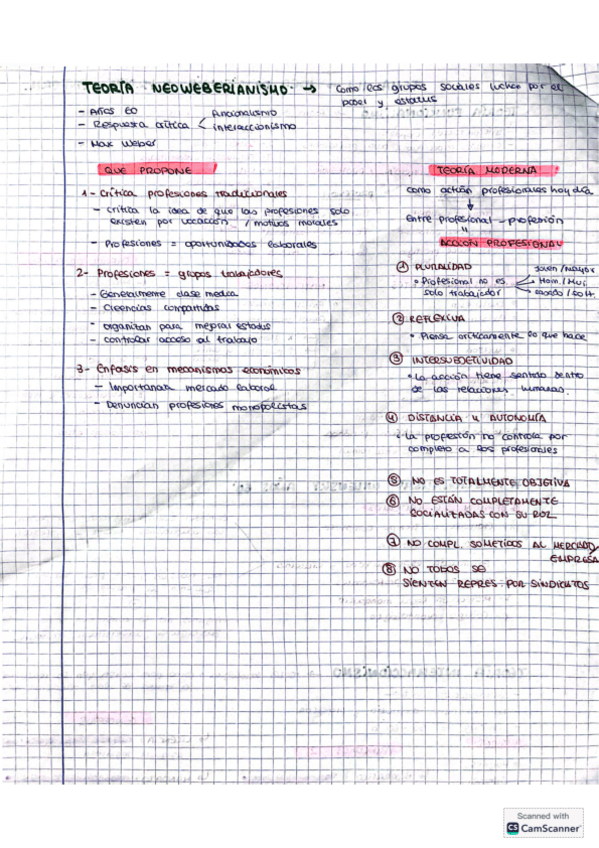 TEORÍA NEOWEBERIANISMO → Como los grupos sociales luchan por el
poder y estatus
- Años 60
- Respuesta crítica < funcionalismo
interaccionismo
- Max Weber
QUE PROPONE
1- Crítica profesiones tradicionales
- crítica la idea de que las profesiones solo
existen por vocación / motivos morales
- Profesiones = oportunidades laborales
2- Profesiones = grupos trabajadores
- Generalmente clase media
- Creencias compartidas
- organizan para mejorar estados
- controlar acceso al trabajo
3- Enfasis en mecanismos económicos
- Importancia mercado laboral
- Denuncian profesiones monopolistas
TEORÍA MODERNA
como actúan profesionales hoy día
↓
Entre profesional - profesión
"
ACCION PROFESIONAL
① PLURALIDAD
• Profesional no es
solo trabajador
Joven / Mayor
Hom. / Muj.
casado / solt.
② REFLEXIVA
• Piensa críticamente lo que hace
③ INTERSUBJETIVIDAD
• La acción tiene sentido dentro
de las relaciones humanas.
④ DISTANCIA y AUTONOMÍA
• La profesión no controla por
completo a los profesionales
⑤ NO ES TOTALMENTE OBJETIVA
⑥ NO ESTÁN COMPLETAMENTE
SOCIALIZADAS CON SU ROL
⑦ NO COMPL. SOMETIDOS AL MERCADO/
EMPRESA
⑧ NO TODOS SE
SIENTEN REPRES POR SINDICATOS
Scanned with
CS CamScanner